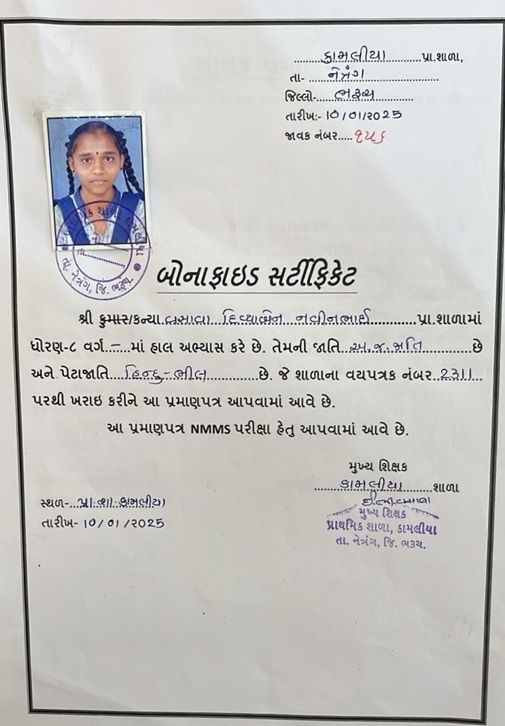 કામલીયા પ્રા.શાળા,
તા- નેત્રંગ
જિલ્લો- ભરૂચ
તારીખ:- 10/01/2025
જાવક નંબર..... ૧૫૬
તા. નેત્રંગ, જિ. ભરૂચ.
બોનાફાઇડ સર્ટીફિકેટ
શ્રી કુમાર/કન્યા વસાવા દિવ્યાબેન નવીનભાઈ પ્રા.શાળામાં
ધોરણ-૮ વર્ગ - માં હાલ અભ્યાસ કરે છે. તેમની જાતિ અ.જ.જાતિ છે
અને પેટાજાતિ હિન્દુ-ભીલ છે. જે શાળાના વયપત્રક નંબર 2311
પરથી ખરાઇ કરીને આ પ્રમાણપત્ર આપવામાં આવે છે.
આ પ્રમાણપત્ર NMMS પરીક્ષા હેતુ આપવામાં આવે છે.
મુખ્ય શિક્ષક
કામલીયા શાળા
સ્થળ- પ્રા.શા. કામલીયા
તારીખ- 10/01/2025
મુખ્ય શિક્ષક
પ્રાથમિક શાળા, કામલીયા
તા. નેત્રંગ, જિ. ભરૂચ.